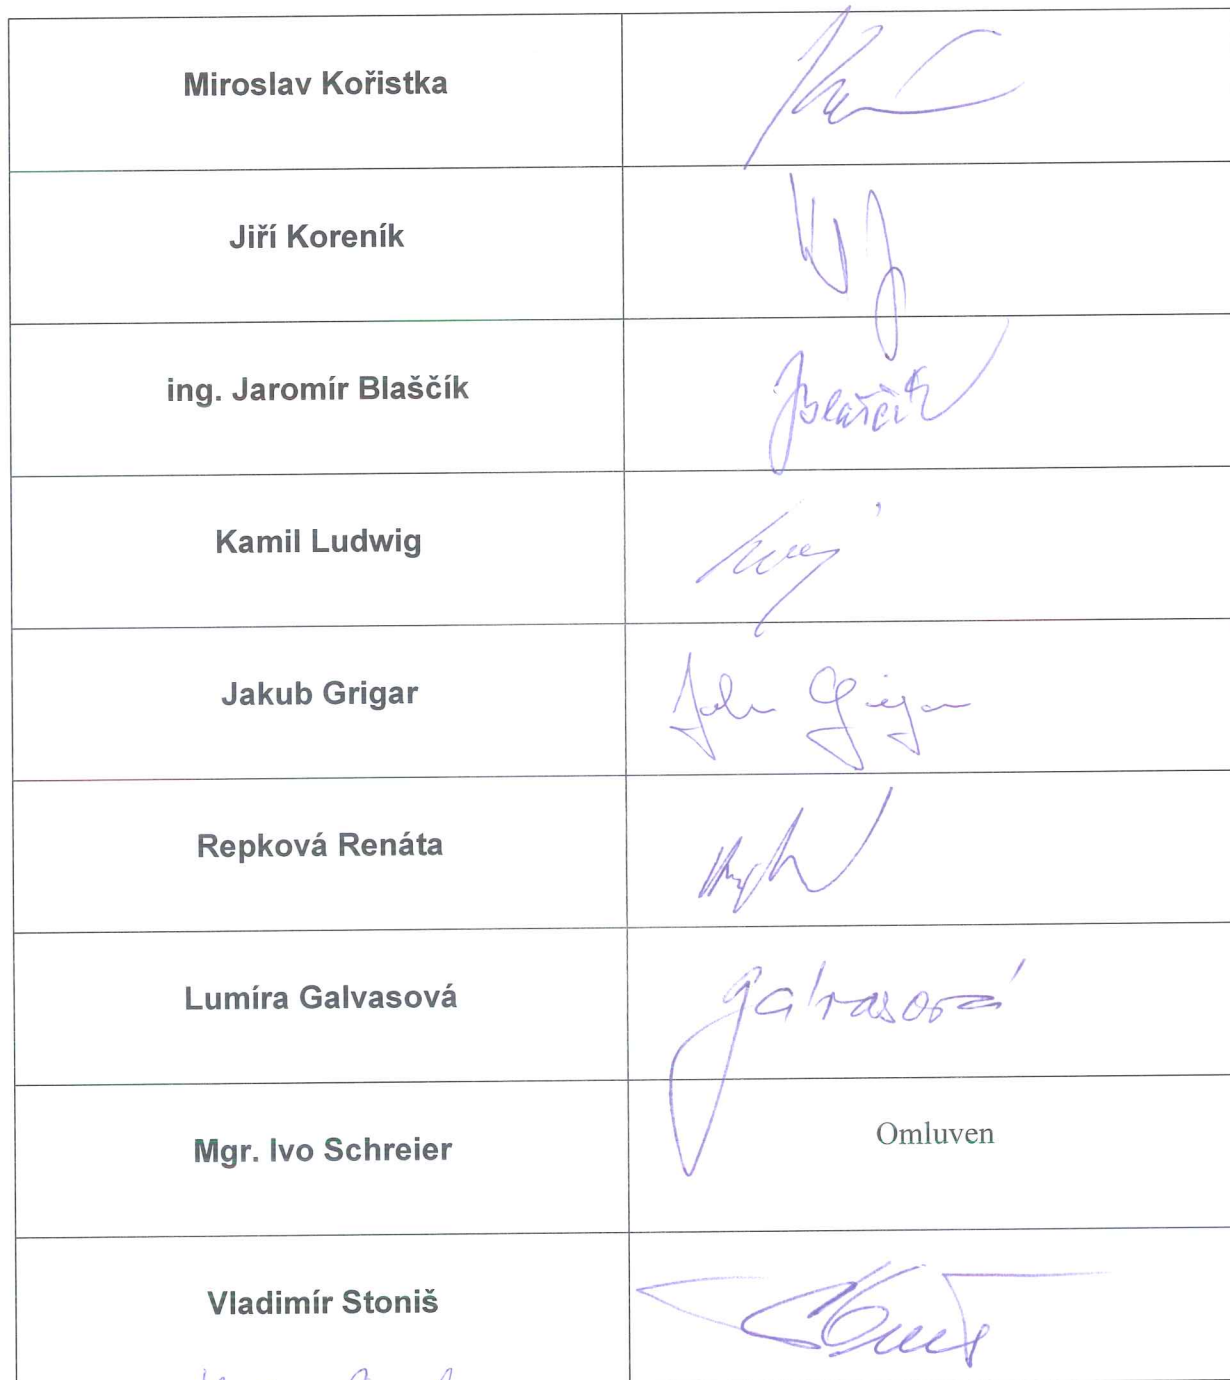 Miroslav Kořistka
Jiří Koreník
ing. Jaromír Blaščík
Blaščík
Kamil Ludwig
Jakub Grigar
Grigar
Repková Renáta
Lumíra Galvasová
Galvasová
Mgr. Ivo Schreier
Omluven
Vladimír Stoniš